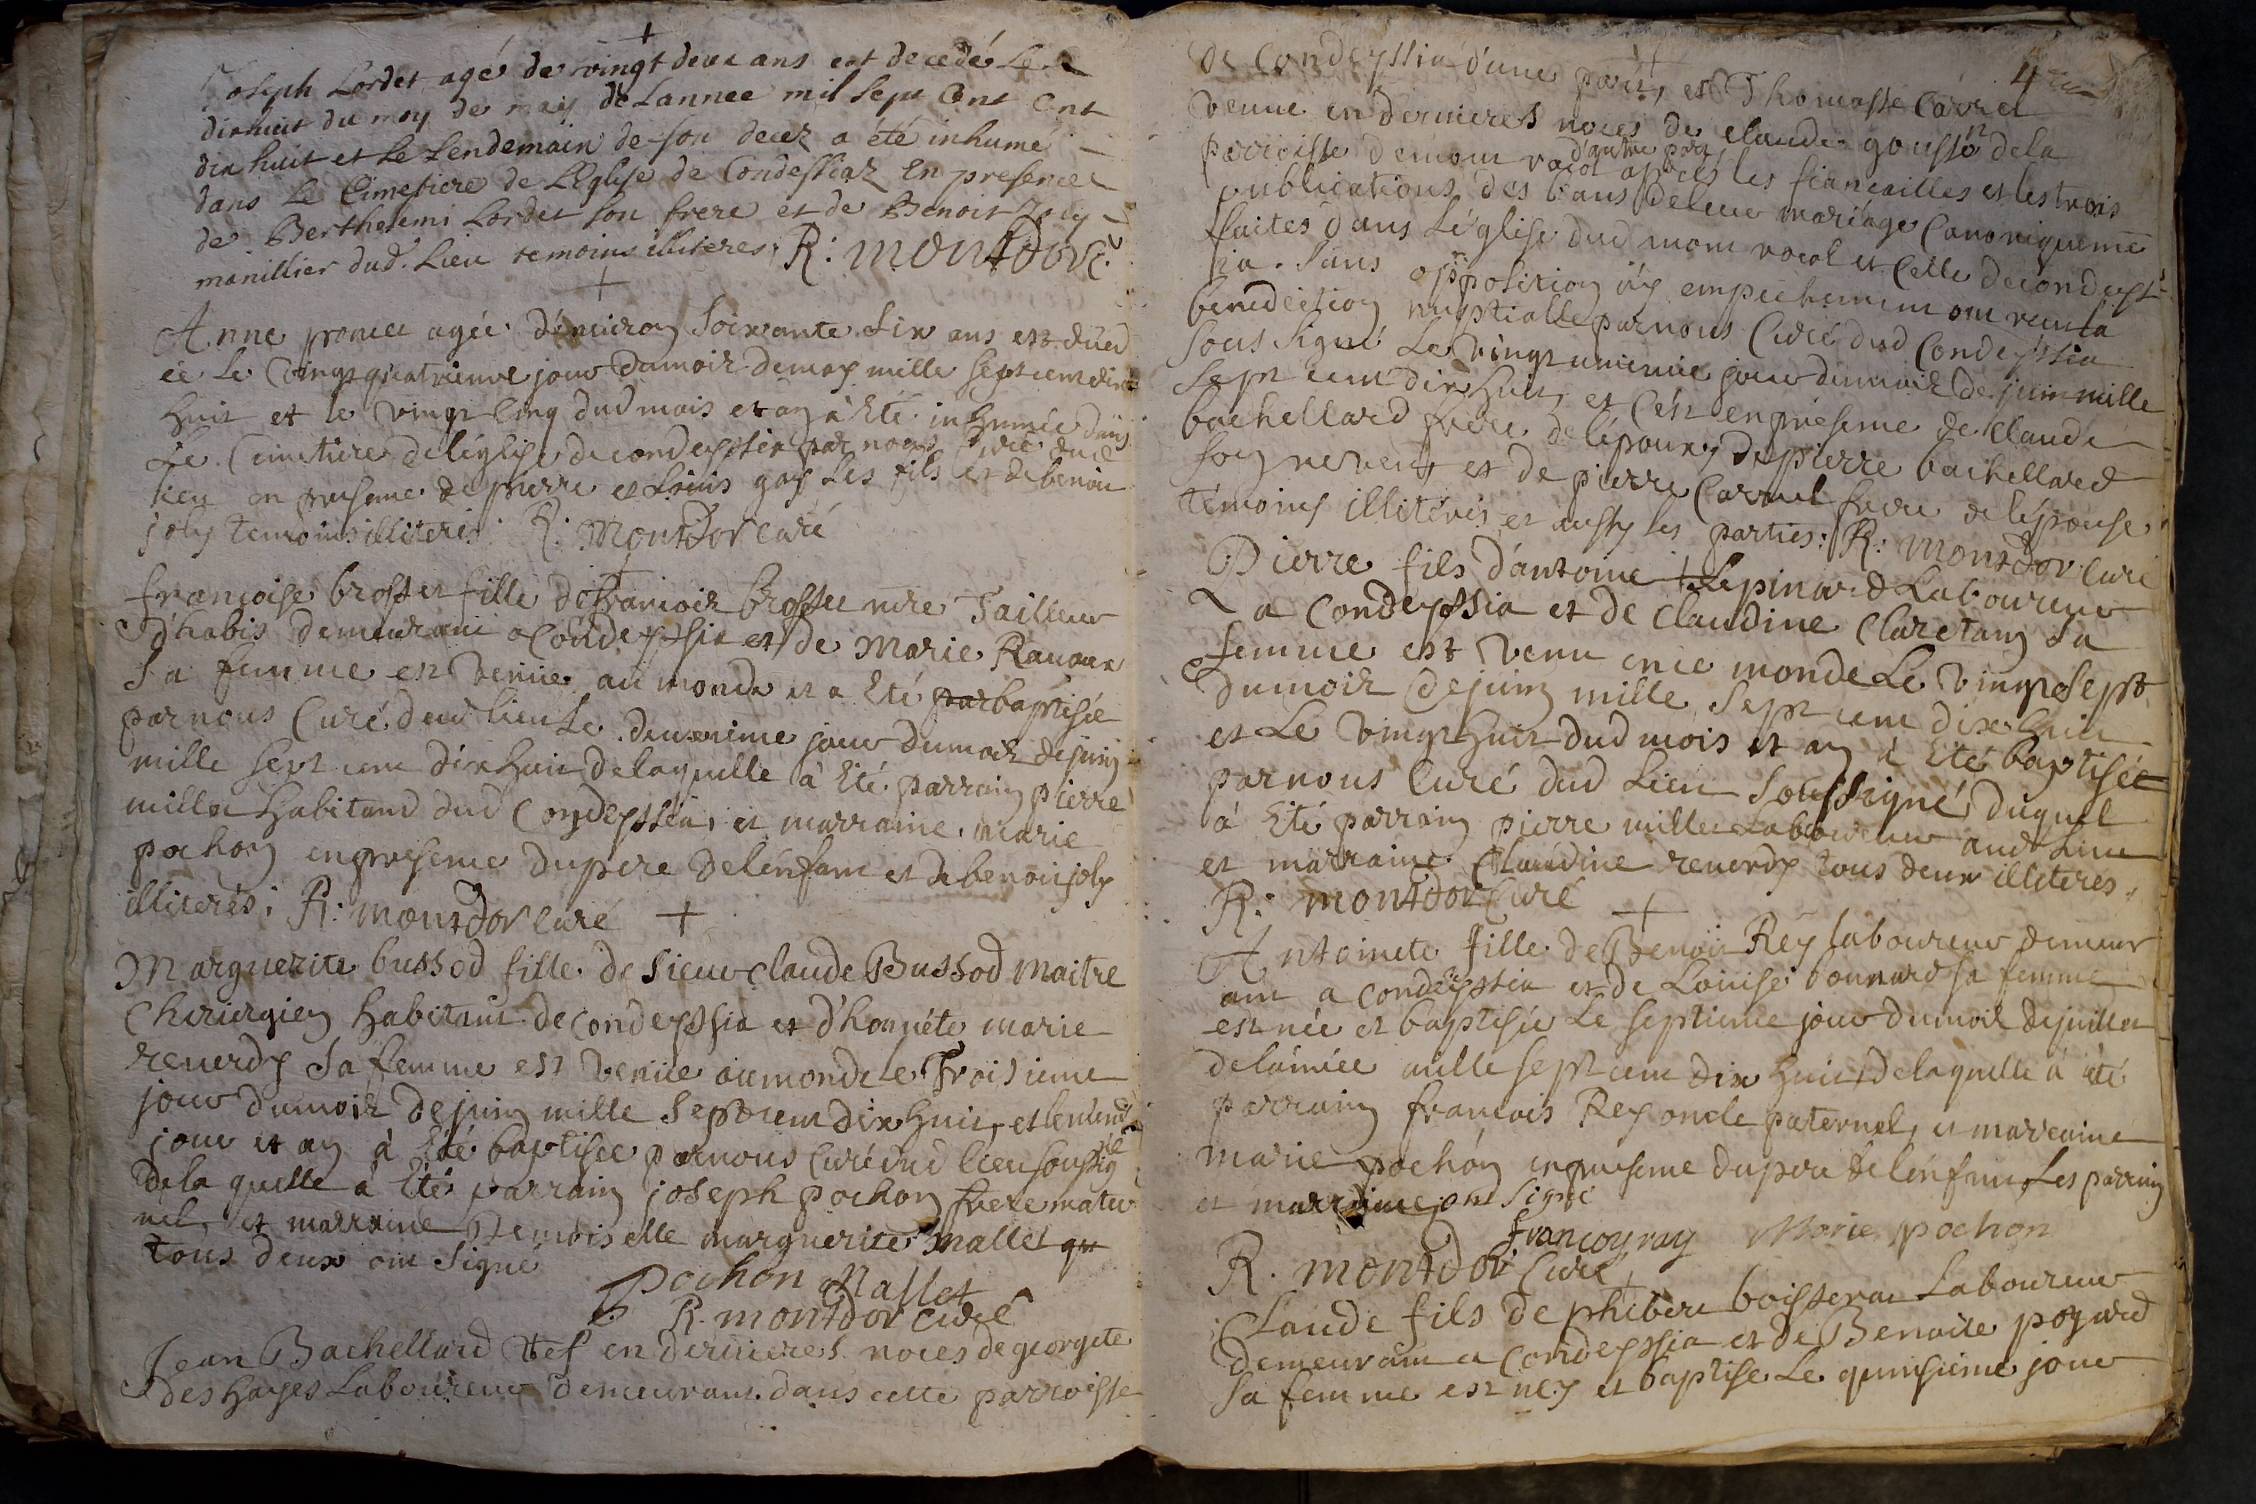 Joseph Lordet agé de vingt deux ans est decedé Le
dixhuit du moy de may de Lannee mil sept Cent
dix huit et Le Lendemain de son decez a été inhumé
dans Le Cimetiere de L'Eglise de Condessiaz En presence
de Berthelemi Lordet son frere et de Benoit Joly
manillier dud. Lieu temoins illiteres; R: montdor C.
Anne agée d'environ soixante six ans est deced
ée Le vingt quatrieme jour dumoir demay mille sept cent dix
huit et le vingt cinq dud mois et an à Eté inhumée dans
Le Cimetiere de léglise de condeyssia par nous Curé dud
lieu en presence de pierre et Loüis gay Les fils et de benoit
joly temoins illiteres. R: Montdor curé
françoise brosset fille de francoir brosset mre Tailleur
d'habis demeurant a Condeyssia et de Marie Ravoux
Sa femme est venüe au monde et a Eté par baptisée
par nous Curé dud lieu Le deuxieme jour dumoir de juin
mille sept cent dixhuit delaquelle à Eté parrain pierre
millet habitant dud Condeyssia, et marraine, marie
pochon en presence du pere de lénfant et de benoit joly
illiterés; R: montdor curé
Marguerite bussod fille de sieur Claude Bussod Maitre
Chirurgien habitant de condeyssia et d'honnéte marie
reverdy Sa femme est venüe au monde Le Troisieme
jour dumoir de juin mille sept cent dix huit, et le mesme
jour et an à Eté baptisée par nous Curé dud lieu soussigné
de la quelle à Eté parrain joseph pochon frere mater
nel, et marraine Demoiselle marguerite mallet qu
tous deux ont signé
Pochon Mallet
R. montdor curé
Jean Bachellard vef en dernieres noces de georgete
deshayes Laboureur demeurant dans cette parroisse
4
de Condeyssia d'une part, et Thomasse Carrel
veuve en dernieres noces de claude gousson de la
parroisse demont racol d'autre part après les fiançailles et les trois
publications des bans de leur mariage Canoniqueme
faites dans L'église dud mont racol et celle de condeys
sia. sans opposition ny empechement ont receu la
benediction nuptialle par nous Curé dud Condeyssia
sous signé Le vingt unieme jour dumoir de juin mille
sept cent dixhuit, et c'est en présence de Claude
bachellard frere de lépoux, de pierre bachellard
son neveu, et de pierre Carrel frere de lépouse
témoins illiterés et aussy les parties: R: montdor curé
Pierre fils d'antoine Lepinard Laboureur
a Condeyssia et de Claudine Claretan Sa
femme est venu en ce monde Le vingt sept
dumoir de juin mille sept cent dix huit
et Le vingt huit dud mois et an à Eté baptisée
par nous Curé dud Lieu soussigné, duquel
à Eté parrain pierre millet Laboureur aud Lieu
et marraine Claudine reverdy tous deux illiteres,
R: montdor Curé
Antoinete fille de Benoit Rey laboureur demeur
ant a condeyssia et de Loüise bonnard sa femme
est née et baptisée Le septieme jour dumoir de juillet
de lánnée mille sept cent dix huit, delaquelle à été
parrain françois Rey oncle paternel, et marraine
marie pochon en presence du pere de lénfant Les parrain
et marraine ont signé
françoy ray Marie pochon
R. montdor Curé
Claude fils de phibert boisserat Laboureur
demeurant a Condeyssia et de Benoite pogard
sa femme est ney et baptisé Le quinsieme jour